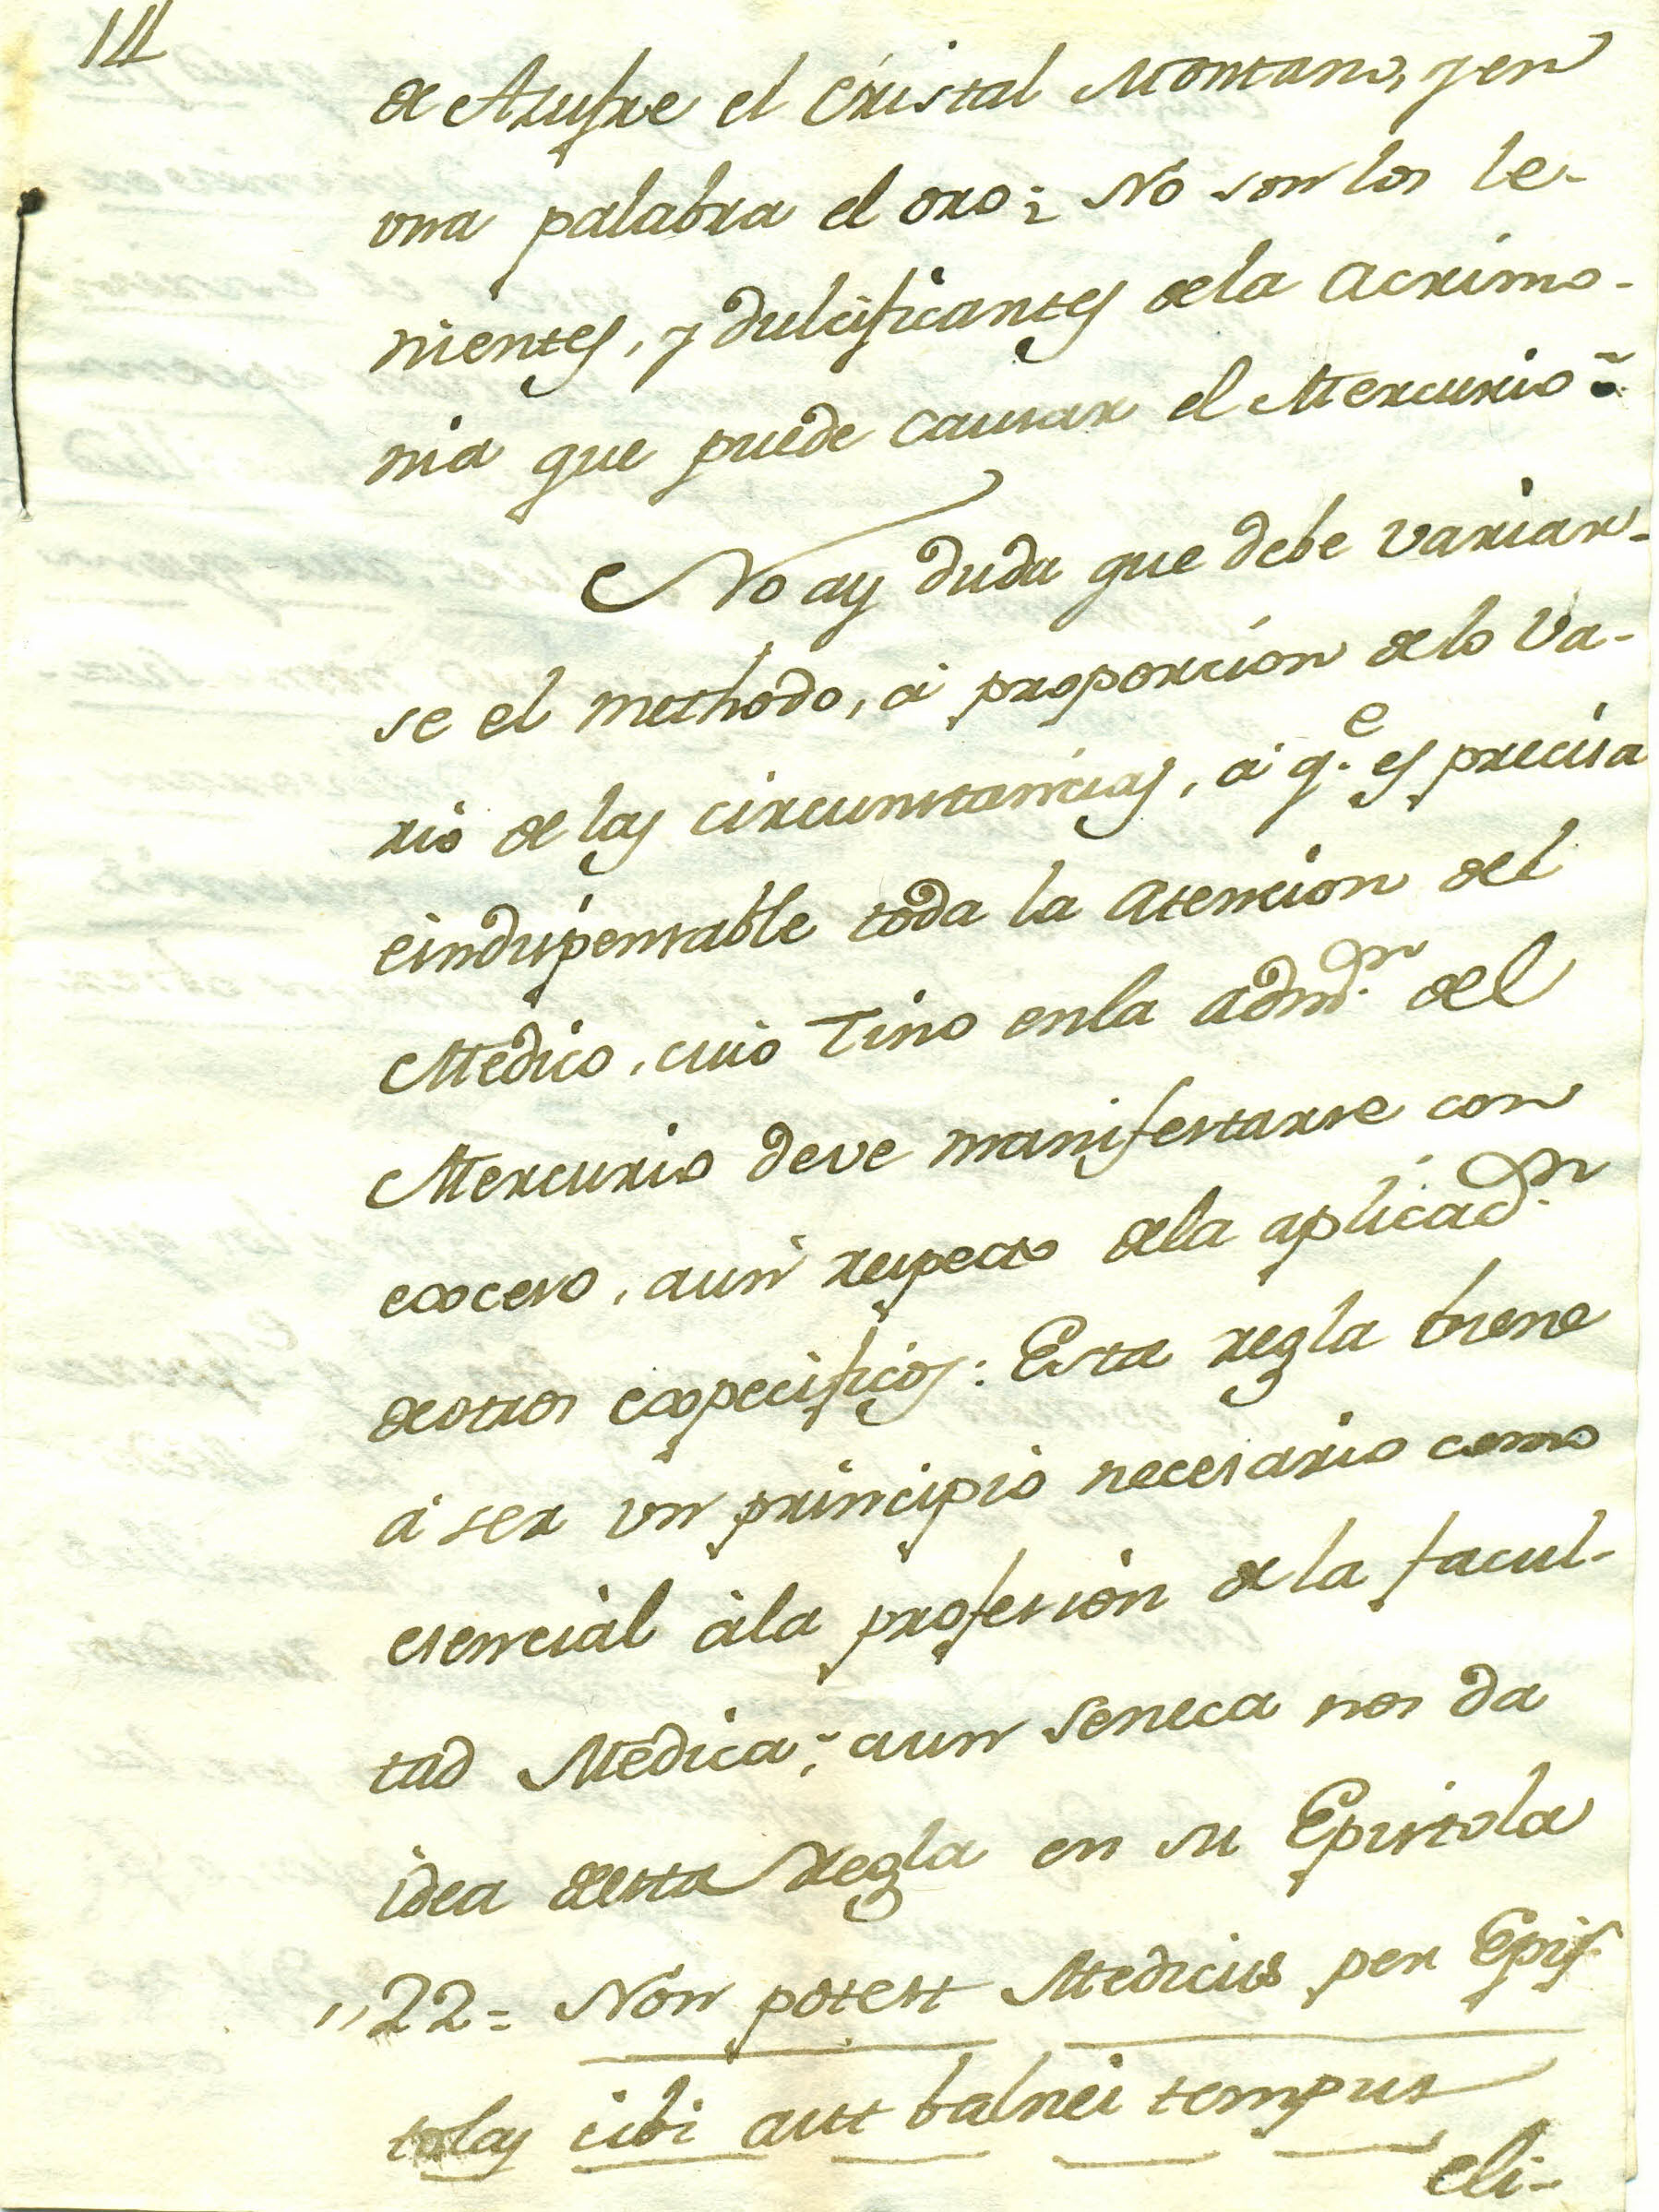 14
de Azufre el Cristal Montano, y en
una palabra el oro; No son los le-
nientes, y dulcificantes dela acrimo-
nia que puede causar el Mercurio?
No ay duda que debe variar-
se el methodo, à proporcion delo va-
rio de las circunstancias, à q.e es precisa
eindispensable toda la atencion del
Medico, cuio Tino enla adm.on del
Mercurio deve manifestarse con
exceso, aun respecto dela aplicac.on
deotros expecificos: Esta regla biene
à ser un principio necesario como
esencial àla profesion de la facul-
tad Medica; aun Seneca nos da
idea desta Regla en su Epistola
" 22= Non potest Medicus per Epis-
tolas cibi aut balnei tempus
eli-